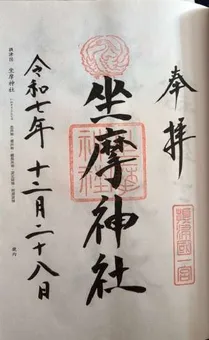 奉拝
摂津國一宮
坐摩神社
令和七年 十二月二十八日
摂津国 坐摩神社